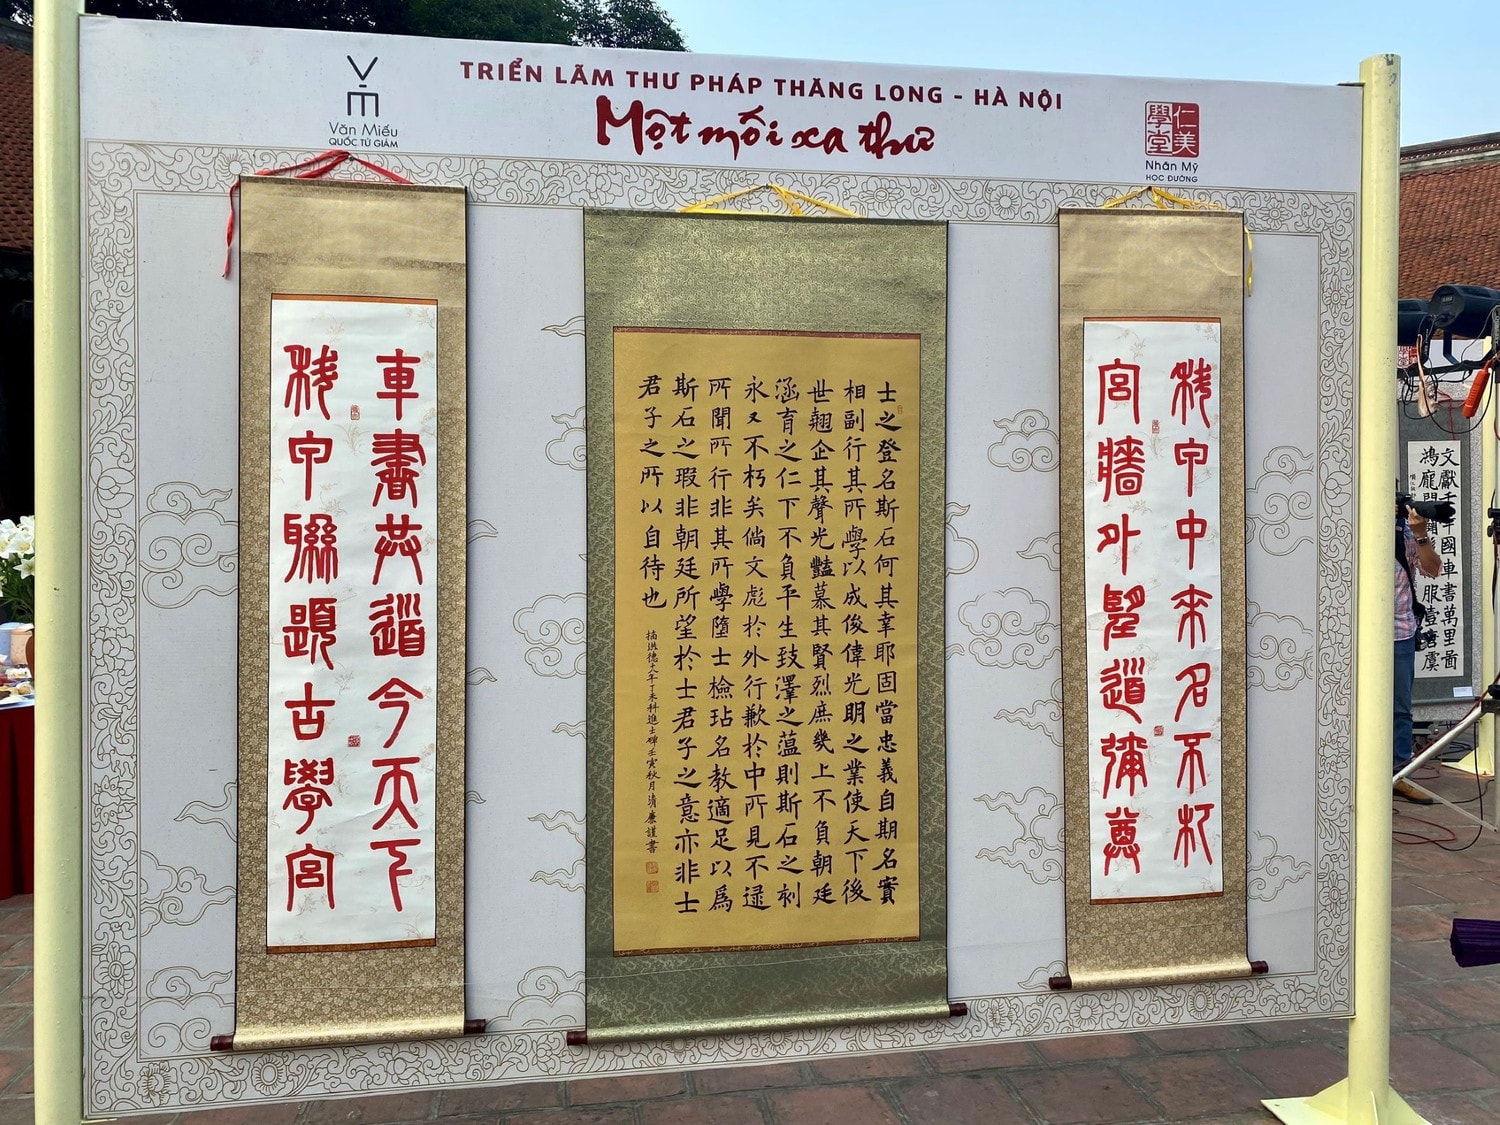 Văn Miếu
QUỐC TỬ GIÁM
TRIỂN LÃM THƯ PHÁP THĂNG LONG - HÀ NỘI
Một mối xa thư
仁美
學堂
Nhân Mỹ
HỌC ĐƯỜNG
車書共道今天下
科甲聯題古學宮
士之登名斯石何其幸耶固當忠義自期名實
相副行其所學以成俊偉光明之業使天下後
世翹企其聲光豔慕其賢烈庶幾上不負朝廷
涵育之仁下不負平生致澤之蘊則斯石之刺
永又不朽矣倘文彪於外行歉於中所見不逮
所聞所行非其所學墮士檢玷名教適足以爲
斯石之瑕非朝廷所望於士君子之意亦非士
君子之所以自待也
摘洪德十八年丁未科進士碑壬寅秋月清廉謹書
科甲中來名不朽
宮墻外望道彌尊
文獻千年國車書萬里圖
鴻龐開闢服壹唐虞